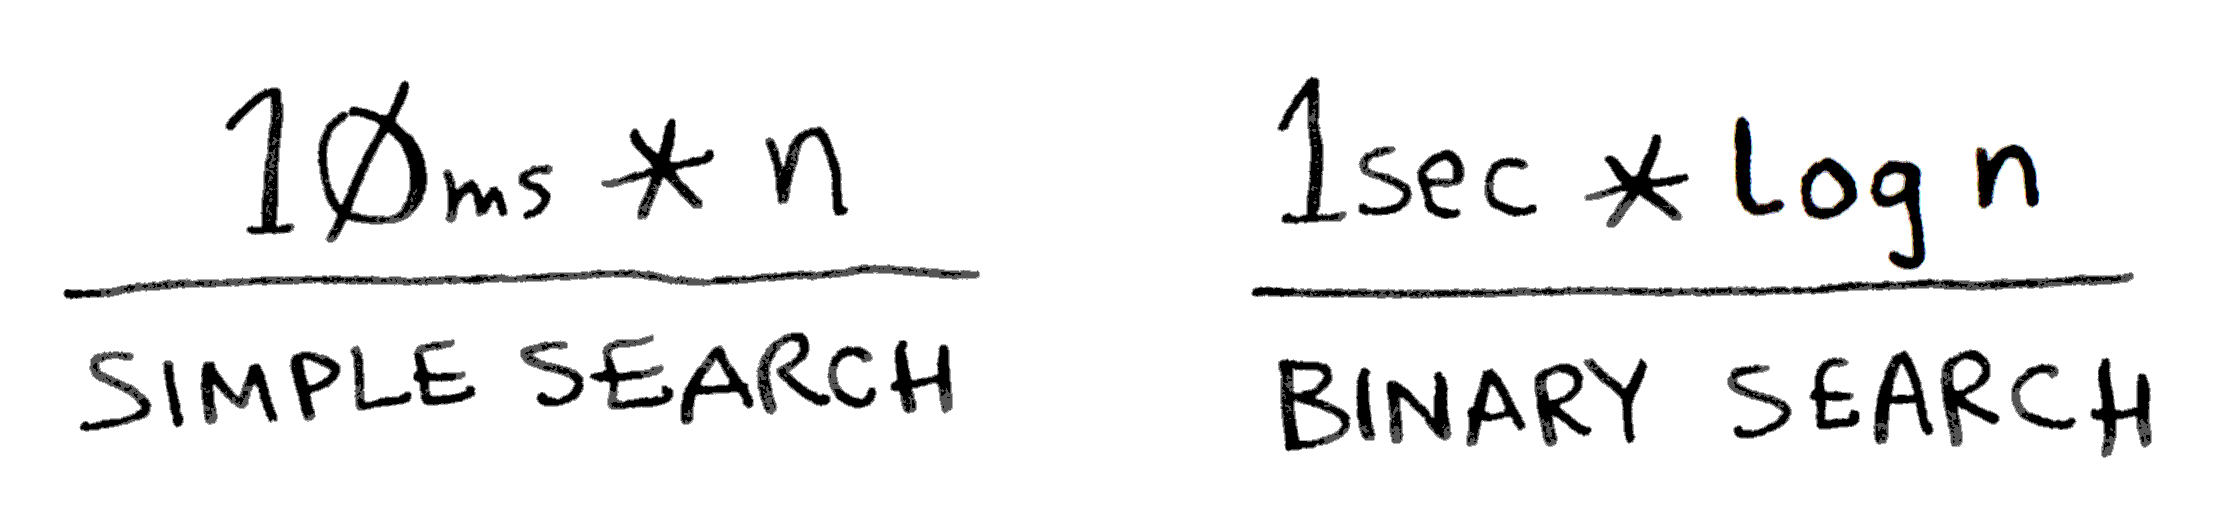 10ms * n
SIMPLE SEARCH
1sec * log n
BINARY SEARCH